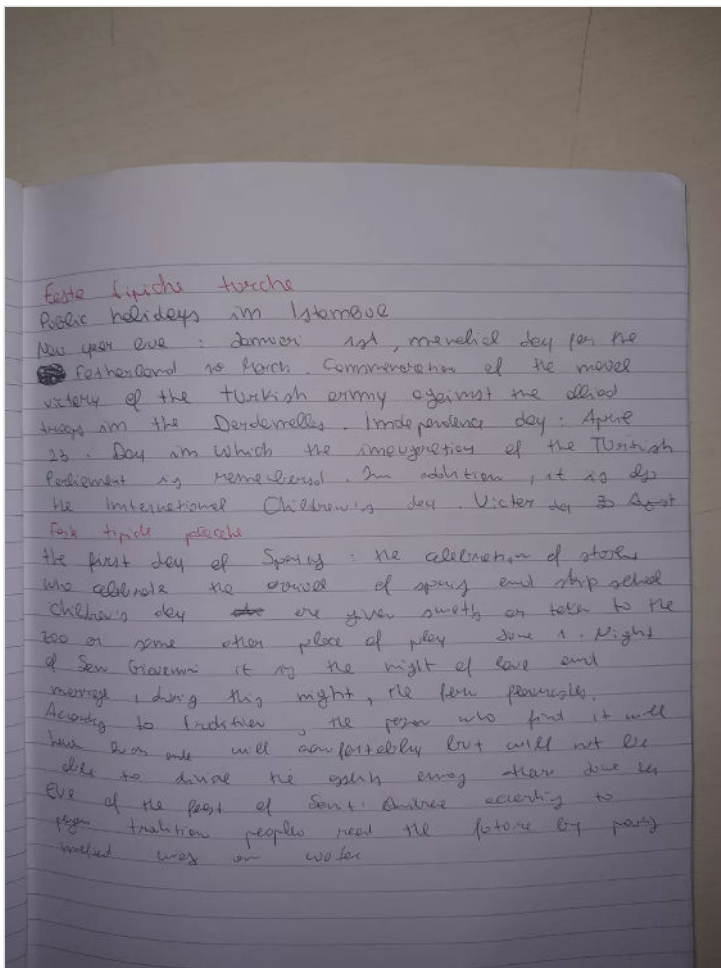 Feste tipiche turche
Public holidays in Istambul
New year eve : Januari 1st, day for the
Fatherland 18 March. Commemoration of the
victory of the turkish army against the allied
troops in the Dardanelles. Independence day : April
23. Day in which the inauguration of the Turkish
Parliament is remembered. In addition, it is also
the International Children's day. Victor day 30 Agust
Feste tipiche
the first day of Spring : the celebration of storks
who celebrate the arrival of spring and skip school
children's day are given sweets or taken to the
zoo or some other place of play June 1. Night
of San Giovanni it is the night of love and
marriage, during this night, the fern
According to tradition, the person who find it will
live comfortably but will not be
able to divide the among
Eve of the feast of Sant' Andrea according to
pagan tradition people read the future by pouring
melted wax on water